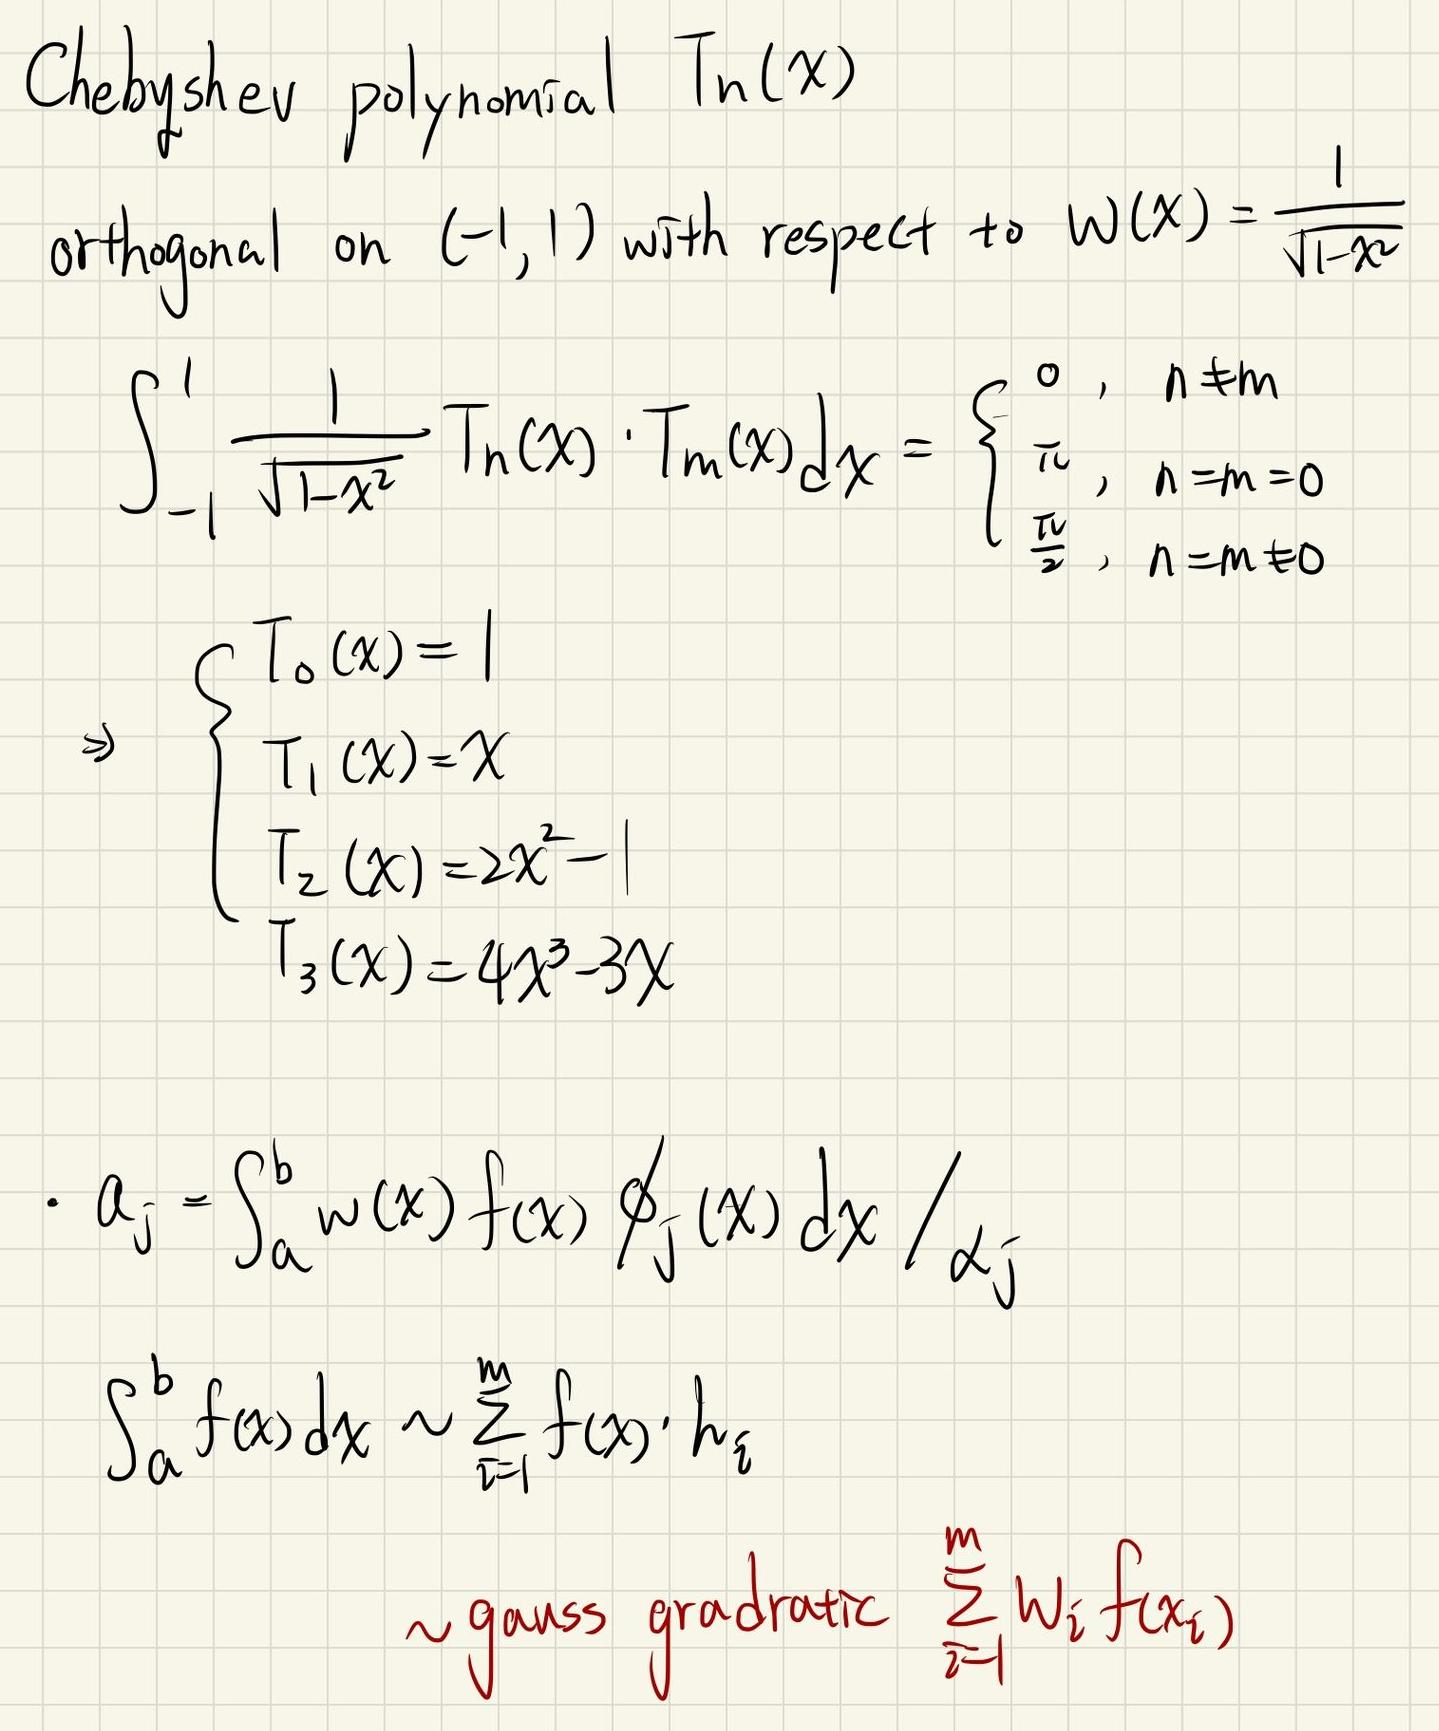 Chebyshev polynomial Tn(x)
orthogonal on (-1, 1) with respect to W(x) = 1/√(1-x²)
∫₋₁¹ 1/√(1-x²) Tn(x) · Tm(x) dx = { 0 , n ≠ m
π , n = m = 0
π/2 , n = m ≠ 0
⇒ { T₀(x) = 1
T₁(x) = x
T₂(x) = 2x² - 1
T₃(x) = 4x³ - 3x
· aⱼ = ∫ₐᵇ w(x) f(x) ϕⱼ(x) dx / αⱼ
∫ₐᵇ f(x) dx ~ ∑ᵢ₌₁ᵐ f(x) · hᵢ
~ gauss gradratic ∑ᵢ₌₁ᵐ Wᵢ f(xᵢ)